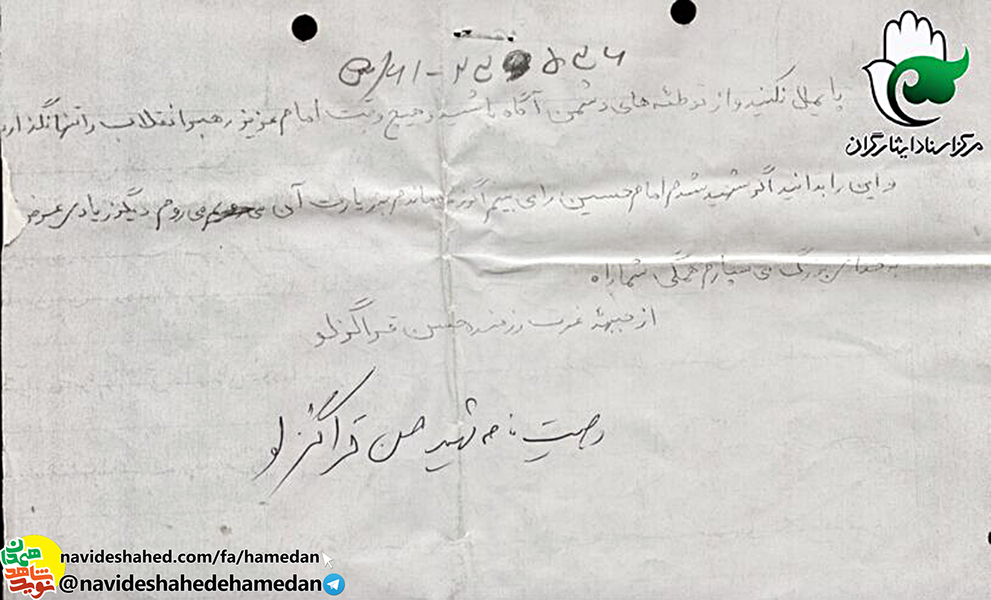 پایمال نکنید و از توطئه های دشمن آگاه باشید و هیچ وقت امام عزیز رهبر انقلاب را تنها نگذارید
و این را بدانید اگر شهید شدم امام حسین را می بینم اگر زنده ماندم به زیارت آن می روم دیگر زیادی عرضی
به خدای بزرگ می سپارم همگی شما را
از جبهۀ غرب رزمنده حسن قراگوزلو
وصیت نامه شهید حسن قراگزلو
مرکز اسناد ایثارگران
نوید شاهد همدان
navideshahed.com/fa/hamedan
@navideshahedehamedan